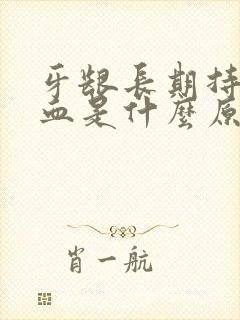 牙龈長期持
血是什麼原
肖一航